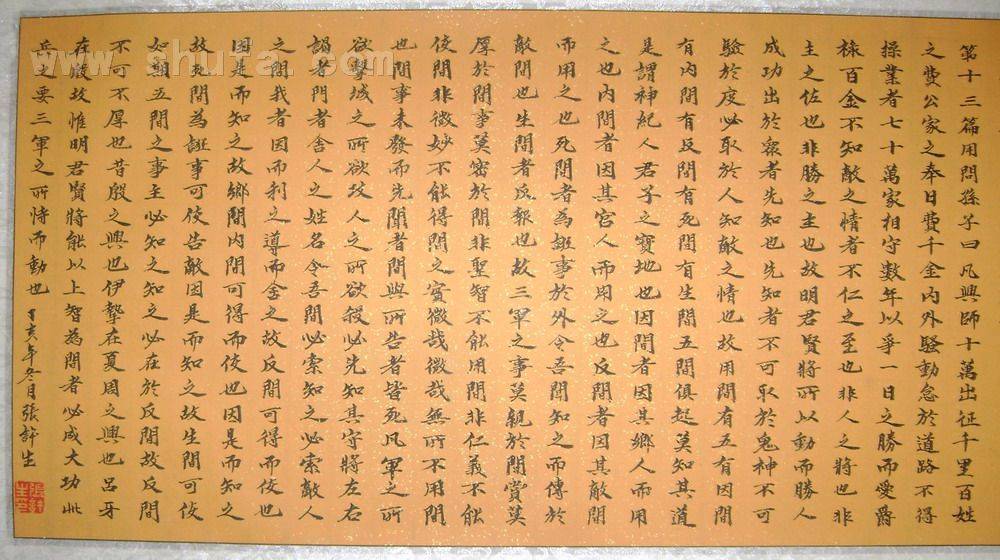 第十三篇用間孫子曰凡興師十萬出征千里百姓
之費公家之奉日費千金內外騷動怠於道路不得
操業者七十萬家相守數年以爭一日之勝而愛爵
祿百金不知敵之情者不仁之至也非人之將也非
主之佐也非勝之主也故明君賢將所以動而勝人
成功出於眾者先知也先知者不可取於鬼神不可
驗於度必取於人知敵之情也故用間有五有因間
有內間有反間有死間有生間五間俱起莫知其道
是謂神紀人君子之寶地也因間者因其鄉人而用
之也內間者因其官人而用之也反間者因其敵間
而用之也死間者為誑事於外令吾間知之而傳於
敵間也生間者反報也故三軍之事莫親於間賞莫
厚於間事莫密於間非聖智不能用間非仁義不能
使間非微妙不能得間之實微哉微哉無所不用間
也間事未發而先聞者間與所告者皆死凡軍之所
欲擊城之所欲攻人之所欲殺必先知其守將左右
謁者門者舍人之姓名令吾間必索知之必索敵人
之間我者因而利之導而舍之故反間可得而使也
因是而知之故鄉間內間可得而使也因是而知之
故死間為誑事可使告敵因是而知之故生間可使
如期五間之事主必知之知之必在於反間故反間
不可不厚也昔殷之興也伊摯在夏周之興也呂牙
在殷故惟明君賢將能以上智為間者必成大功此
兵之要三軍之所恃而動也
丁亥年冬月張許生
www.shufa.com